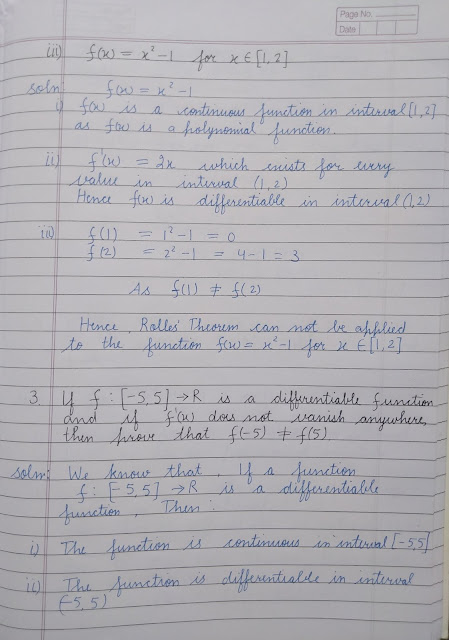 Page No.
Date
iii) f(x) = x² -1 for x ∈ [1, 2]
soln f(x) = x² -1
i) f(x) is a continuous function in interval [1, 2]
as f(x) is a polynomial function.
ii) f'(x) = 2x which exists for every
value in interval (1, 2)
Hence f(x) is differentiable in interval (1, 2)
iii) f(1) = 1² -1 = 0
f(2) = 2² -1 = 4 -1 = 3
As f(1) ≠ f(2)
Hence, Rolles' Theorem can not be applied
to the function f(x) = x² -1 for x ∈ [1, 2]
3. If f : [-5, 5] → R is a differentiable function
and if f'(x) does not vanish anywhere,
then prove that f(-5) ≠ f(5)
soln: We know that, If a function
f : [-5, 5] → R is a differentiable
function, Then :
i) The function is continuous in interval [-5, 5]
ii) The function is differentiable in interval
(-5, 5)